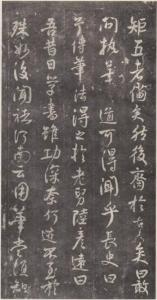 矩五者備矣然後齊於古人敢
問執筆之道可得聞乎長史曰
予傳筆法得之於老舅陸彥遠曰
吾昔日學書雖功深奈何迹不至於
殊妙後聞褚河南云用筆當須知